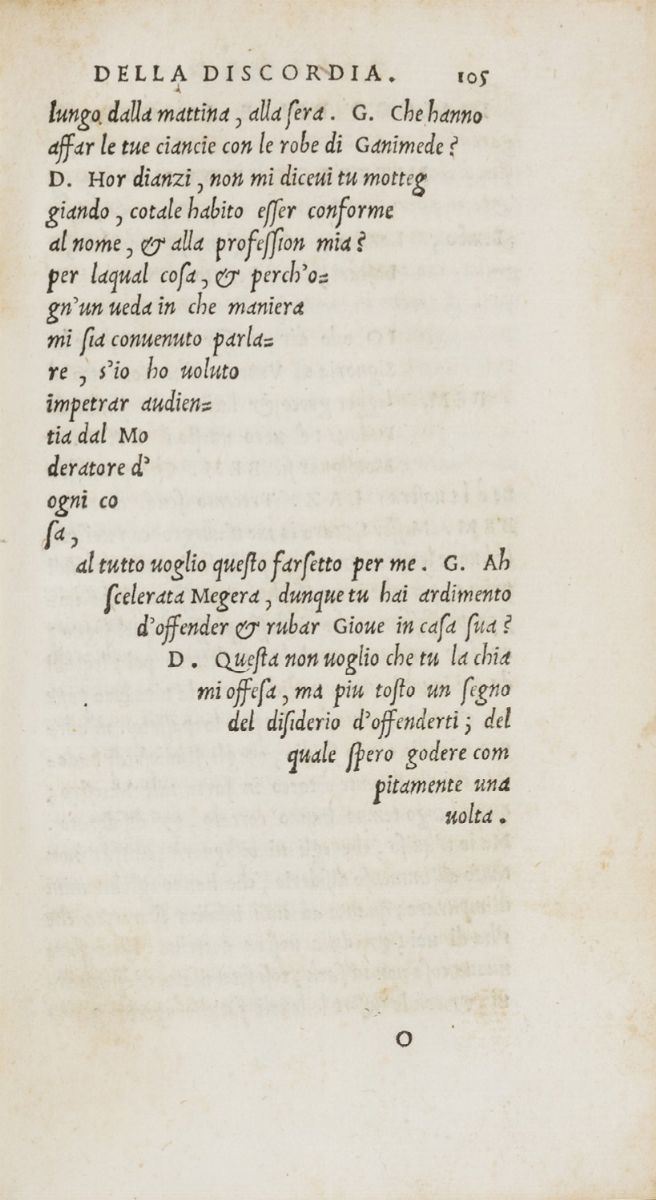 DELLA DISCORDIA. 105
lungo dalla mattina, alla ſera. G. Che hanno
affar le tue ciancie con le robe di Ganimede?
D. Hor dianzi, non mi diceui tu motteg
giando, cotale habito eſſer conforme
al nome, & alla profeſſion mia?
per laqual coſa, & perch'o=
gn'un ueda in che maniera
mi ſia conuenuto parla=
re, s'io ho uoluto
impetrar audien=
tia dal Mo
deratore d'
ogni co
ſa,
al tutto uoglio queſto farſetto per me. G. Ah
ſcelerata Megera, dunque tu hai ardimento
d'offender & rubar Gioue in caſa ſua?
D. Queſta non uoglio che tu la chia
mi offeſa, ma piu toſto un ſegno
del diſiderio d'offenderti; del
quale ſpero godere com
pitamente una
uolta.
O